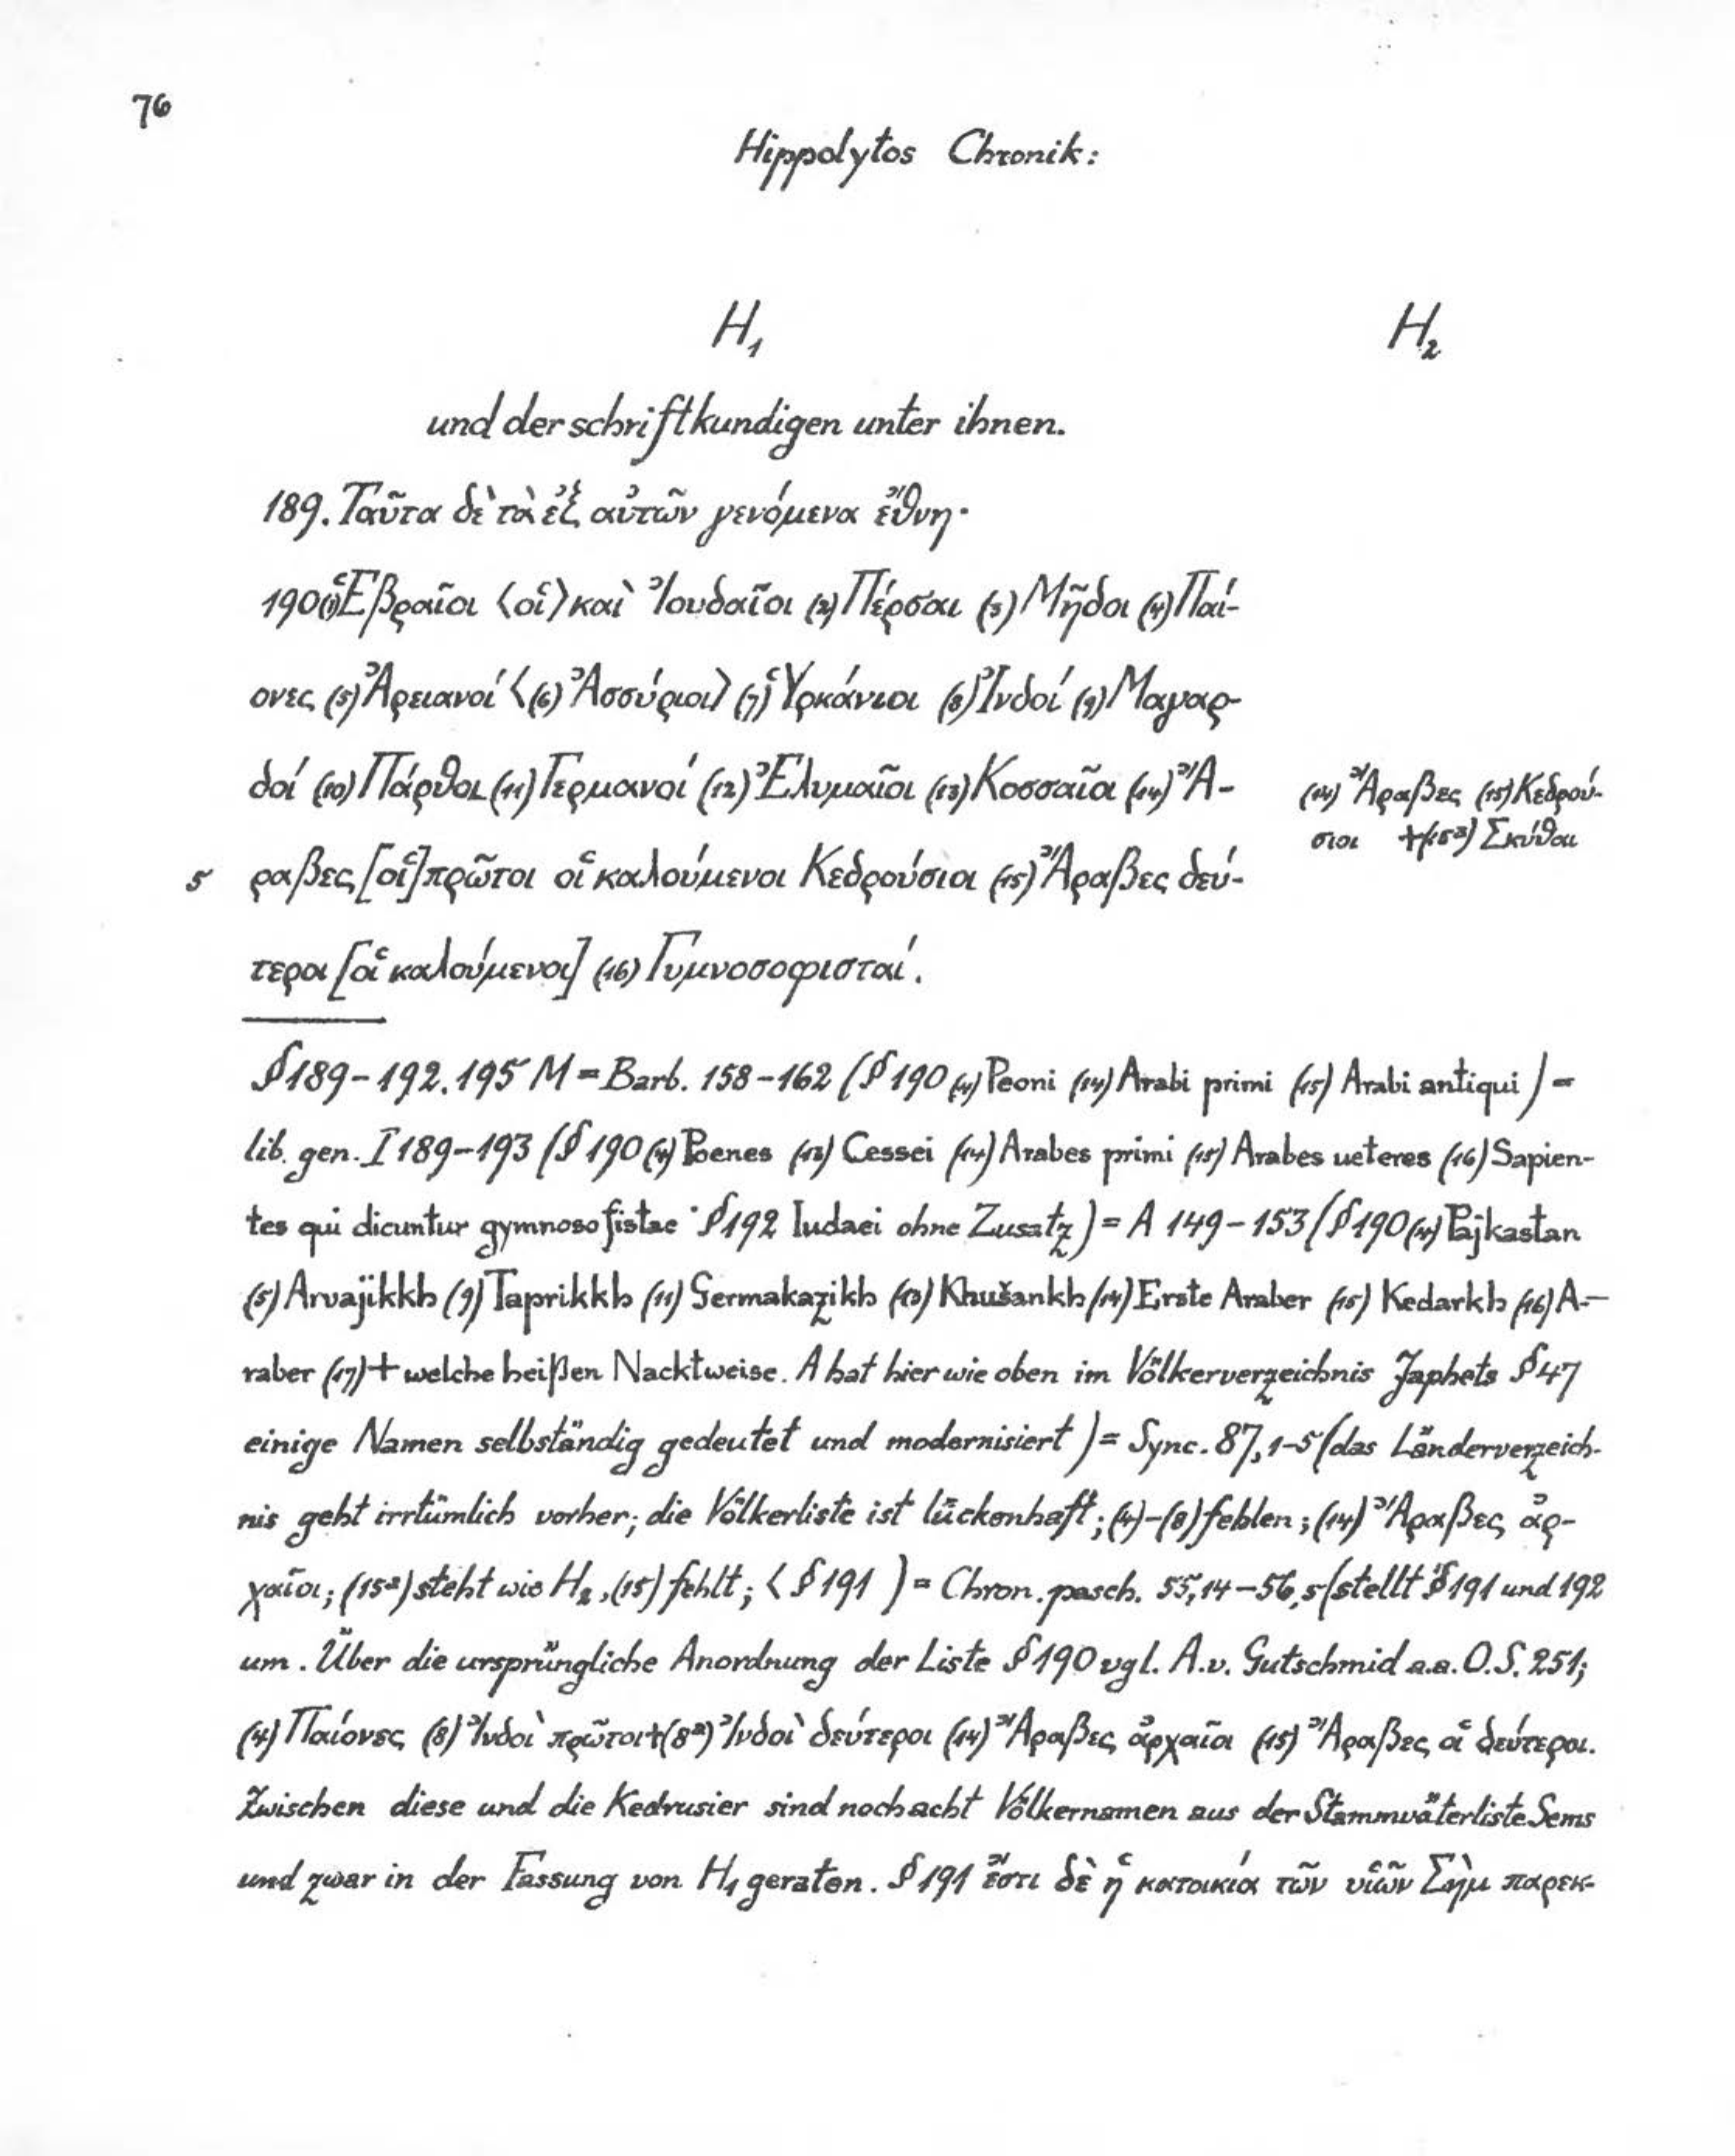 76
Hippolytos Chronik:
H₁
H₂
und der schriftkundigen unter ihnen.
189. Ταῦτα δὲ τὰ ἐξ αὐτῶν γενόμενα ἔθνη·
190 (1) Ἑβραῖοι ⟨οἱ⟩ καὶ Ἰουδαῖοι (2) Πέρσαι (3) Μῆδοι (4) Παί-
ονες (5) Ἀρειανοί ⟨(6) Ἀσσύριοι⟩ (7) Ὑρκάνιοι (8) Ἰνδοί (9) Μαγαρ-
δοί (10) Πάρθοι (11) Γερμανοί (12) Ἐλυμαῖοι (13) Κοσσαῖοι (14) Ἄ-
(14) Ἄραβες (15) Κεδρού-
σιοι +(15ᵃ) Σκύθαι
5 ραβες [οἱ] πρῶτοι οἱ καλούμενοι Κεδρούσιοι (15) Ἄραβες δεύ-
τεροι [οἱ καλούμενοι] (16) Γυμνοσοφισταί.
§ 189–192. 195 M = Barb. 158–162 (§ 190 (4) Peoni (14) Arabi primi (15) Arabi antiqui) =
lib. gen. I 189–193 (§ 190 (4) Poenes (13) Cessei (14) Arabes primi (15) Arabes ueteres (16) Sapien-
tes qui dicuntur gymnosofistae · § 192 Iudaei ohne Zusatz) = A 149–153 (§ 190 (4) Pajkastan
(5) Arvajikkh (9) Taprikkh (11) Germakazikh (13) Khušankh (14) Erste Araber (15) Kedarkh (16) A-
raber (17) + welche heißen Nacktweise. A hat hier wie oben im Völkerverzeichnis Japhets § 47
einige Namen selbständig gedeutet und modernisiert) = Sync. 87, 1–5 (das Länderverzeich-
nis geht irrtümlich vorher; die Völkerliste ist lückenhaft; (4)–(8) fehlen; (14) Ἄραβες ἀρ-
χαῖοι; (15ᵃ) steht wie H₂, (15) fehlt; ⟨ § 191 ) = Chron. pasch. 55, 14–56, 5 (stellt § 191 und 192
um. Über die ursprüngliche Anordnung der Liste § 190 vgl. A. v. Gutschmid a. a. O. S. 251;
(4) Παίονες (8) Ἰνδοὶ πρῶτοι +(8ᵃ) Ἰνδοὶ δεύτεροι (14) Ἄραβες ἀρχαῖοι (15) Ἄραβες οἱ δεύτεροι.
Zwischen diese und die Kedrusier sind noch acht Völkernamen aus der Stammväterliste Sems
und zwar in der Fassung von H₁ geraten. § 191 ἔστι δὲ ἡ κατοικία τῶν υἱῶν Σὴμ παρεκ-